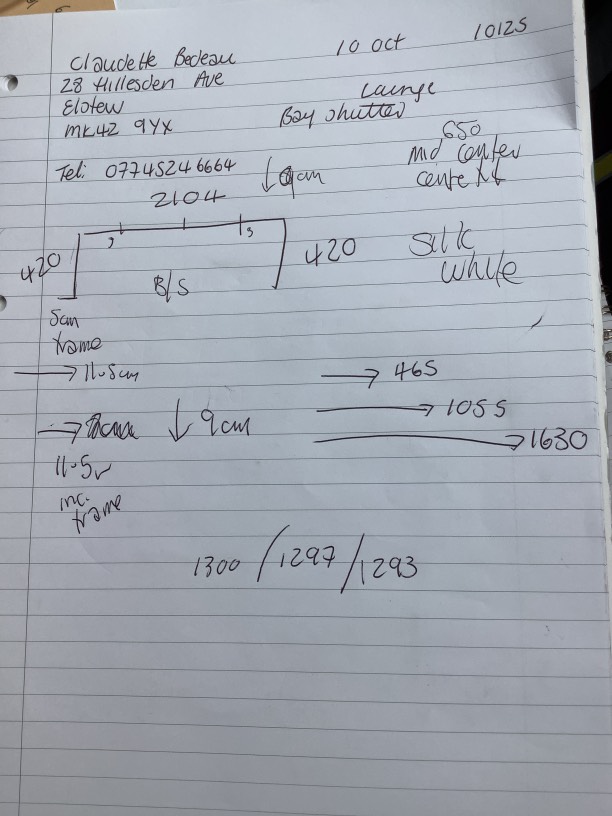 10 Oct 10125
Claudette Bedeau
28 Hillesden Ave
Elstow
MK42 9YX
Lounge
Bay shutter
Tel: 07745246664
↓ 9cm
650
Mid center
2104
420
B/S
420
Silk
white
5cm
frame
→ 11.5cm
→ 465
→ 1055
→ 1630
→ ↓ 9cm
11.5
inc.
frame
1300 / 1297 / 1293